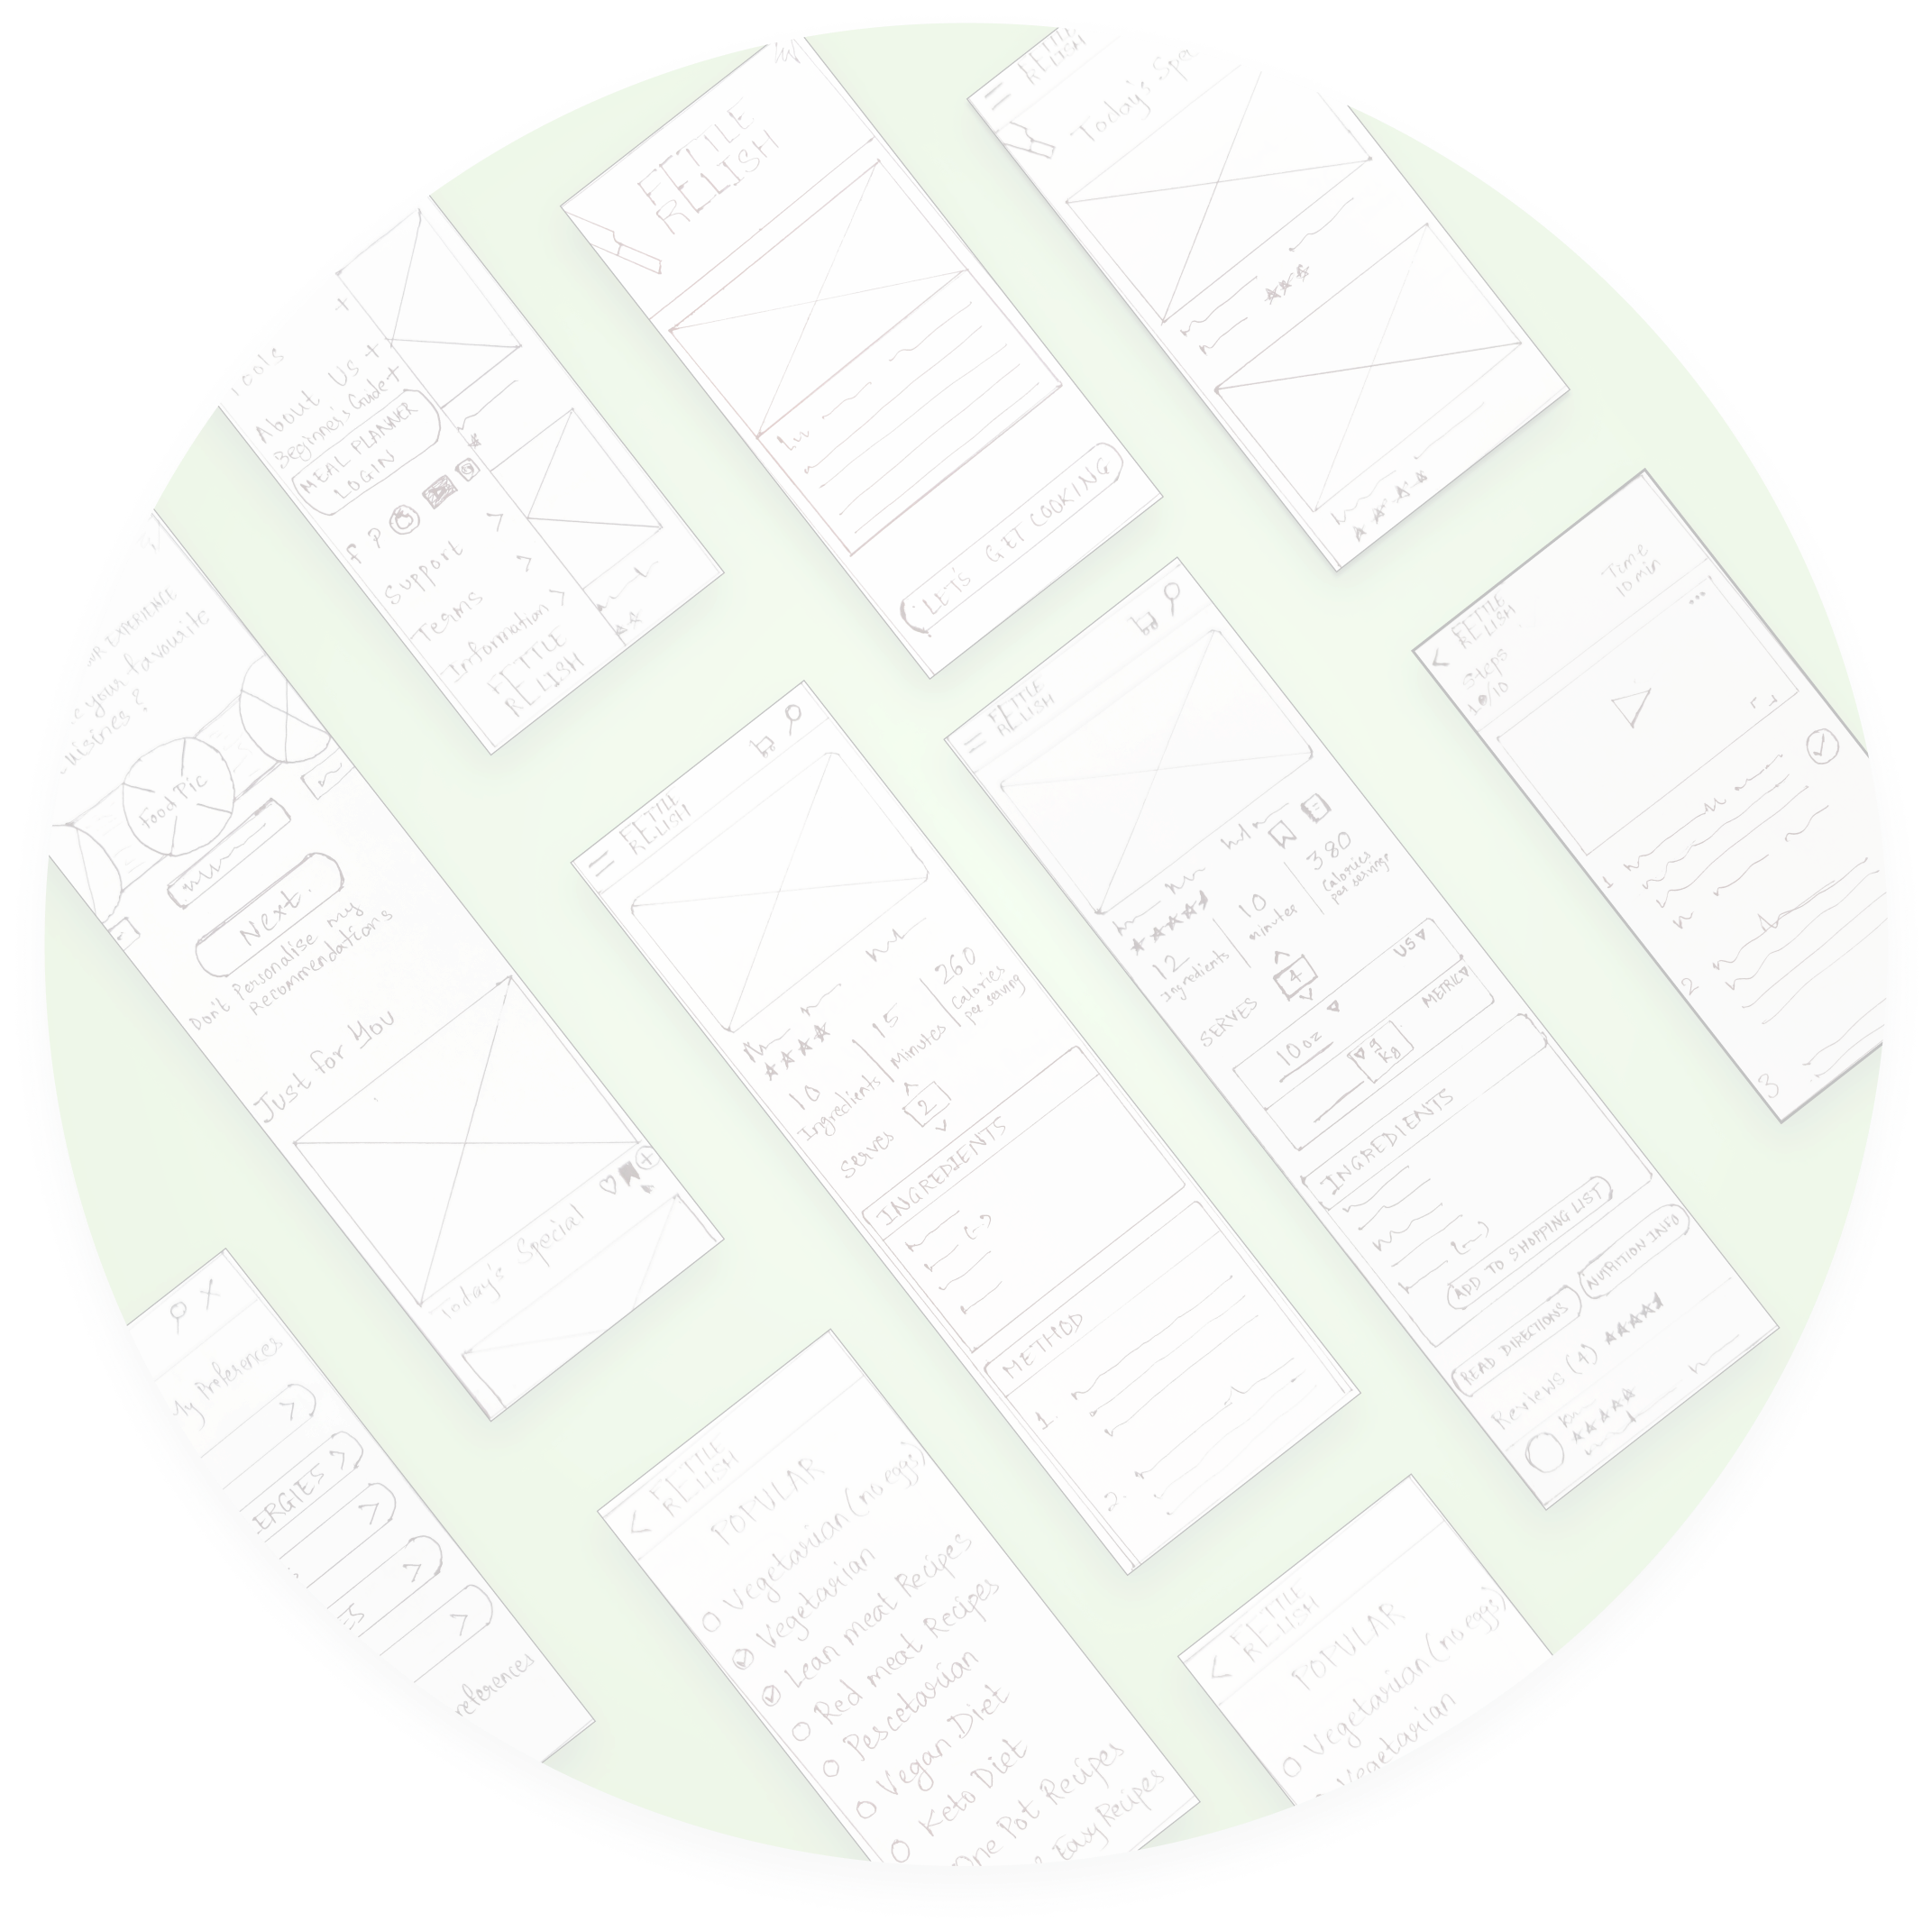 Tools
About Us +
Beginner's Guide +
MEAL PLANNER
LOGIN
f
Support >
Terms >
Information >
FETTLE
RELISH
FETTLE
RELISH
LET'S GET COOKING
Today's Spe
Time
10 min
FETTLE
RELISH
Steps
/10
1
2
3
EXPERIENCE
your favourite
Food Pic
Next.
Don't Personalise my
Recommendations
Just for You
Today's Special
FETTLE
RELISH
10
Ingredients
15
Minutes
260
Calories
per serving
Serves
2
INGREDIENTS
METHOD
1.
2.
FETTLE
RELISH
12
Ingredients
10
minutes
380
Calories
per serving
SERVES
4
US
METRIC
10 oz
kg
INGREDIENTS
ADD TO SHOPPING LIST
READ DIRECTIONS
NUTRITION INFO
Reviews (4)
My Preferences
ERGIES >
references
FETTLE
RELISH
POPULAR
Vegetarian (no eggs)
Vegetarian
Lean meat Recipes
Red meat Recipes
Pescetarian
Vegan Diet
Keto Diet
One Pot Recipes
Easy Recipes
FETTLE
RELISH
POPULAR
Vegetarian (no eggs)
Vegetarian